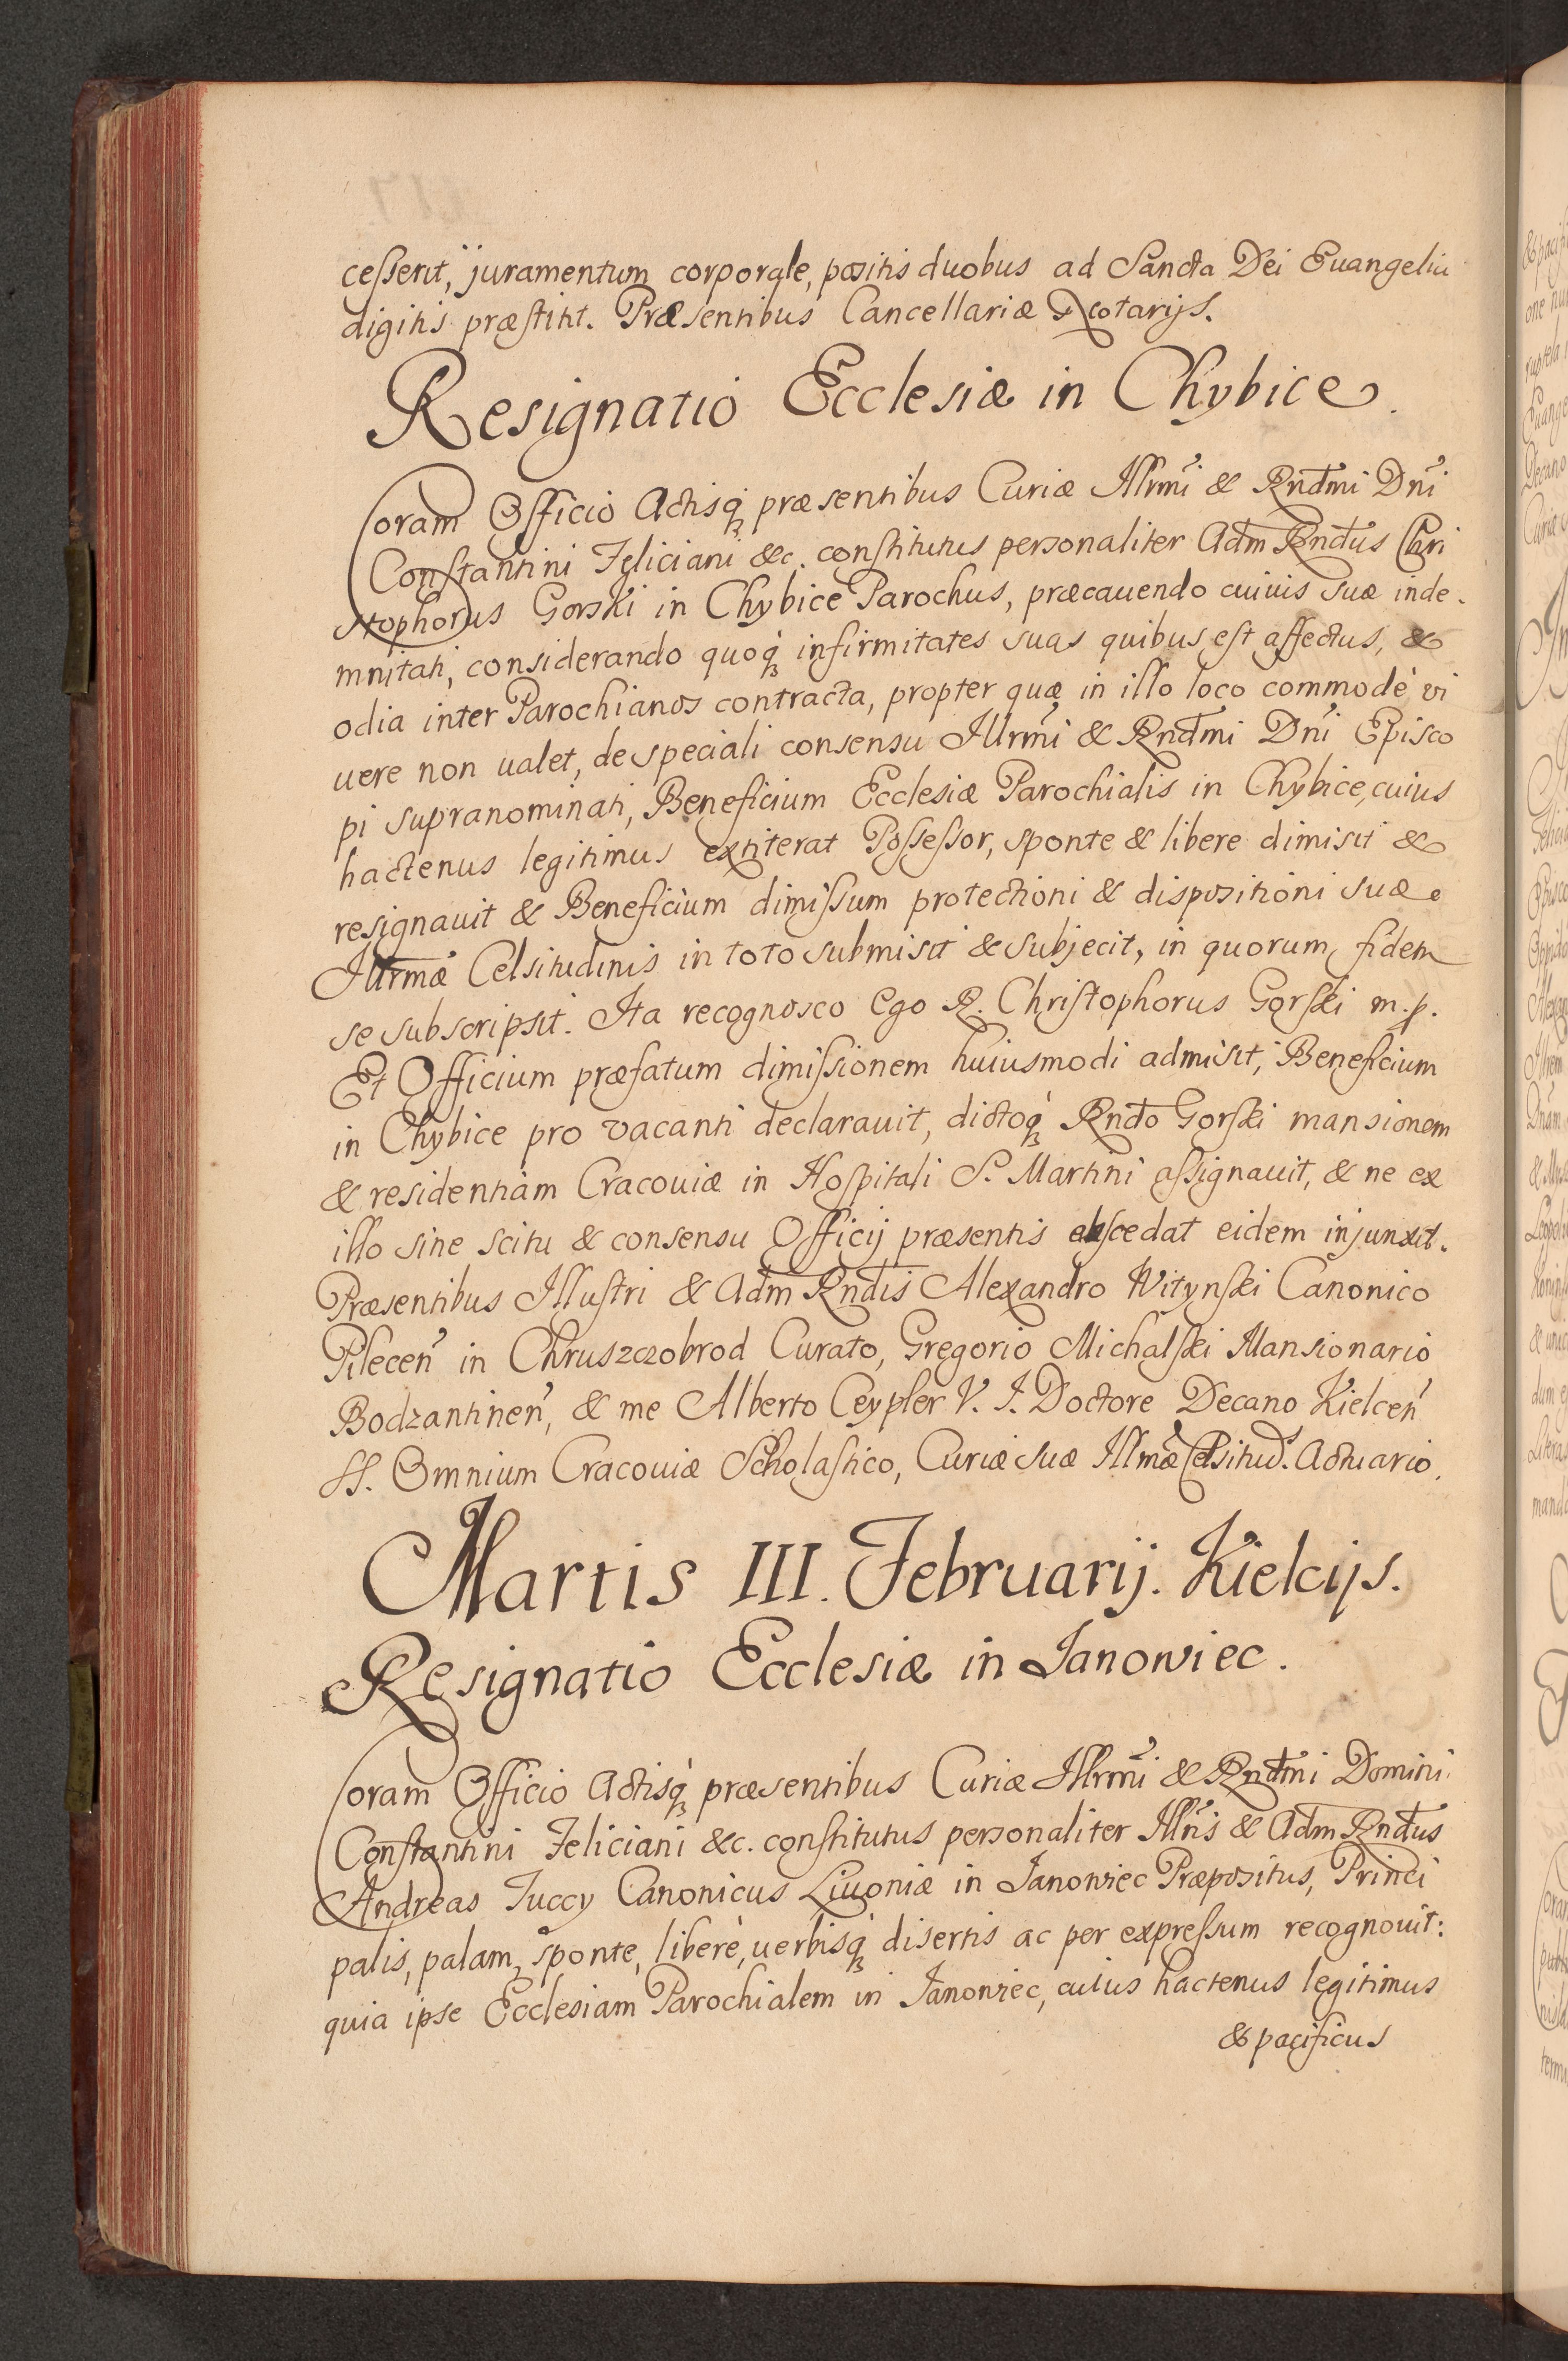 cesserit, juramentum corporale, positis duobus ad Sancta Dei Euangelia
digitis præstitit. Præsentibus Cancellariæ Notarijs.
Resignatio Ecclesiæ in Chybice.
Coram Officio Actisq́ præsentibus Curiæ Illrmi & Rndmi Dni
Constantini Feliciani &c. constitutus personaliter Adm Rndus Chri
stophorus Gorski in Chybice Parochus, præcauendo cuiuis suæ inde-
mnitati, considerando quoq́ infirmitates suas quibus est affectus, &
odia inter Parochianos contracta, propter quæ in illo loco commodè vi
uere non ualet, de speciali consensu Illrmi & Rndmi Dni Episco
pi supranominati, Beneficium Ecclesiæ Parochialis in Chybice, cuius
hactenus legitimus extiterat Possessor, sponte & libere dimisit &
resignauit & Beneficium dimissum protectioni & dispositioni suæ
Illrmæ Celsitudinis in toto submisit & subjecit, in quorum fidem
se subscripsit. Ita recognosco Ego R. Christophorus Gorski m.p.
Et Officium præfatum dimissionem huiusmodi admisit, Beneficium
in Chybice pro vacanti declarauit, dictoq́ Rndo Gorski mansionem
& residentiam Cracouiæ in Hospitali S. Martini assignauit, & ne ex
illo sine scitu & consensu Officij præsentis abscedat eidem injunxit.
Præsentibus Illustri & Adm Rndis Alexandro Witynski Canonico
Pilecen in Chruszczobrod Curato, Gregorio Michalski Mansionario
Bodzantinen, & me Alberto Ceypler V. J. Doctore Decano Kielcen
SS. Omnium Cracouiæ Scholastico, Curiæ suæ Illmæ Celsitud. Actuario.
Martis III. Februarij. Kielcijs.
Resignatio Ecclesiæ in Janowiec.
Coram Officio Actisq́ præsentibus Curiæ Illrmi & Rndmi Domini
Constantini Feliciani &c. constitutus personaliter Illris & Adm Rndus
Andreas Juccy Canonicus Liuoniæ in Janowiec Præpositus, Princi
palis, palam, sponte, liberè, uerbisq́ disertis ac per expressum recognouit:
quia ipse Ecclesiam Parochialem in Janowiec, cuius hactenus legitimus
& pacificus